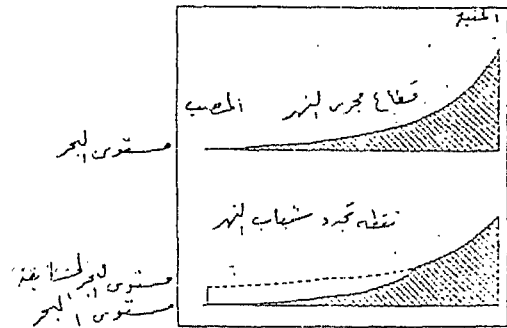 المنبع
قطاع مجرى النهر المصب
مستوى البحر
نقطة تجدد شباب النهر
مستوى البحر
مستوى البحر